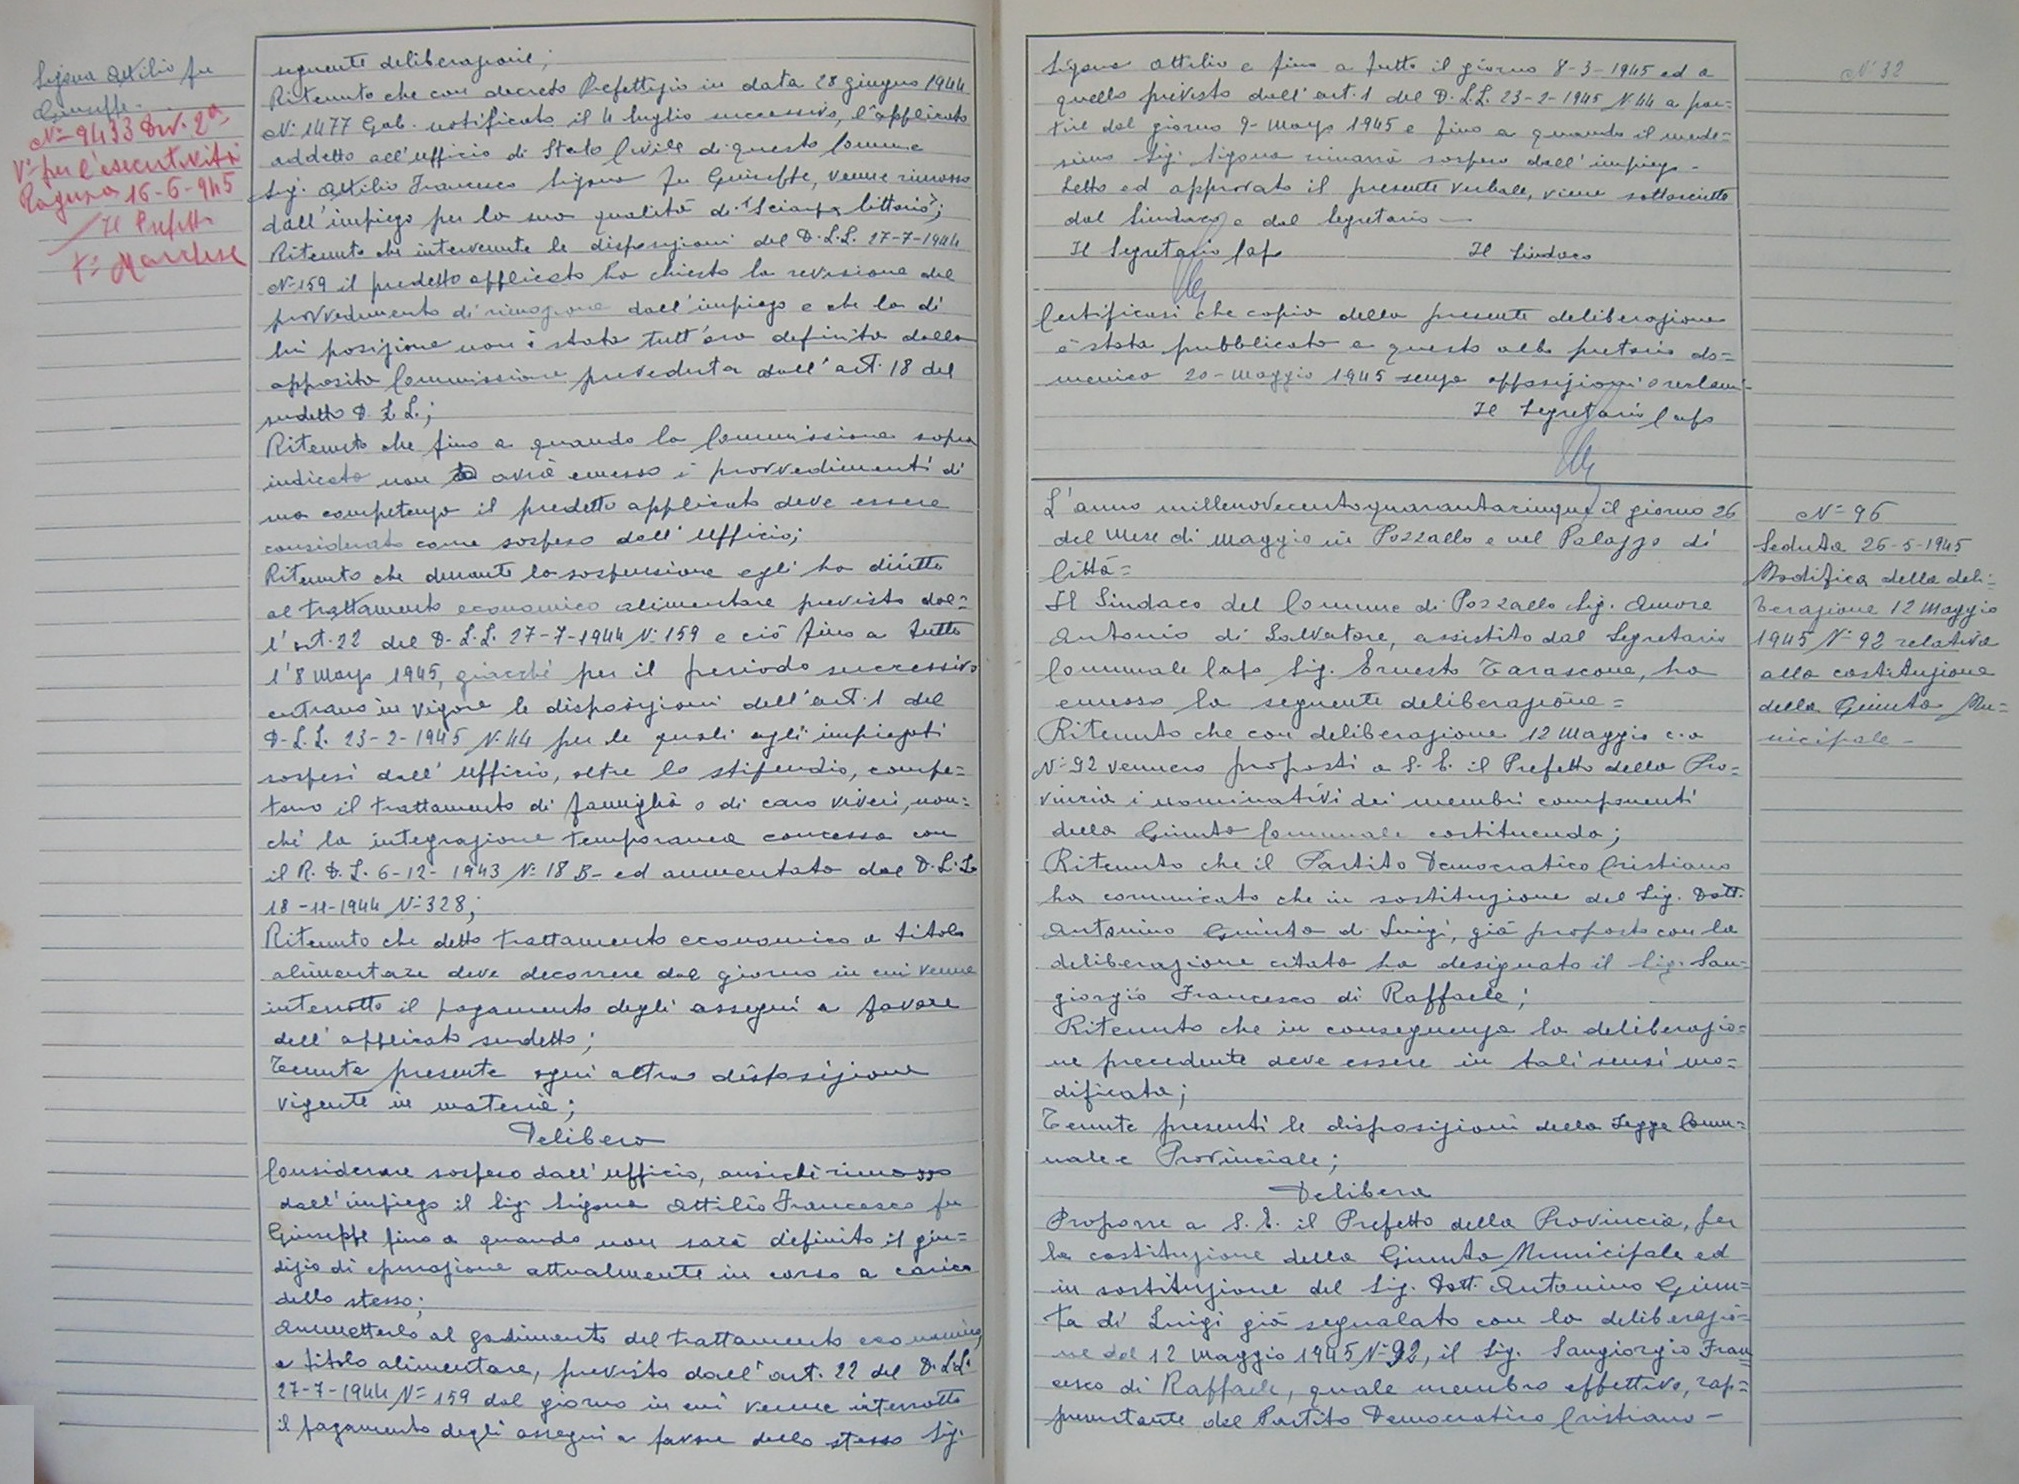 Sigona Attilio fu
Giuseppe-
N= 9433 Div. 2ª
V° per l'esecutività
Ragusa 16-6-945
Il Prefetto
F° Marchese
seguente deliberazione;
Ritenuto che con decreto Prefettizio in data 28 giugno 1944
N° 1477 Gab. notificato il 4 luglio successivo, l'applicato
addetto all'ufficio di Stato Civile di questo Comune
Sig. Attilio Francesco Sigona fu Giuseppe, venne rimosso
dall'impiego per la sua qualità di "Sciarpa Littorio";
Ritenuto che intervenute le disposizioni del D.L.L. 27-7-1944
N° 159 il predetto applicato ha chiesto la revisione del
provvedimento di rimozione dall'impiego e che la di
lui posizione non è stata tutt'ora definita dalla
apposita Commissione preveduta dall'art. 18 del
sudetto D.L.L.;
Ritenuto che fino a quando la Commissione sopra
indicata non avrà emesso i provvedimenti di
sua competenza il predetto applicato deve essere
considerato come sospeso dall'Ufficio;
Ritenuto che durante la sospensione egli ha diritto
al trattamento economico alimentare previsto dal=
l'art. 22 del D.L.L. 27-7-1944 N. 159 e ciò fino a tutto
l'8 Marzo 1945, giacchè per il periodo successivo
entrano in vigore le disposizioni dell'art. 1 del
D.L.L. 23-2-1945 N. 44 per le quali agli impiegati
sospesi dall'Ufficio, oltre lo stipendio, compe=
tono il trattamento di famiglia o di caro viveri, non=
chè la integrazione temporanea concessa con
il R.D.L. 6-12-1943 N. 18 B- ed aumentata dal D.L.L.
18-11-1944 N= 328;
Ritenuto che detto trattamento economico a titolo
alimentare deve decorrere dal giorno in cui venne
interrotto il pagamento degli assegni a favore
dell'applicato sudetto;
Tenuta presente ogni altra disposizione
vigente in materia;
Delibera
Considerare sospeso dall'ufficio, anzichè rimosso
dall'impiego il Sig. Sigona Attilio Francesco fu
Giuseppe fino a quando non sarà definito il giu=
dizio di epurazione attualmente in corso a carico
dello stesso;
Ammetterlo al godimento del trattamento economico
a titolo alimentare, previsto dall'art. 22 del D.L.L.
27-7-1944 N= 159 dal giorno in cui venne interrotto
il pagamento degli assegni a favore dello stesso Sig.
Sigona Attilio e fino a tutto il giorno 8-3-1945 ed a
quello previsto dall'art. 1 del D.L.L. 23-2-1945 N. 44 a par=
tire dal giorno 9-Marzo 1945 e fino a quando il mede=
simo Sig. Sigona rimarrà sospeso dall'impiego-
Letto ed approvato il presente verbale, viene sottoscritto
dal Sindaco e dal Segretario —
Il Segretario Capo Il Sindaco
Certificasi che copia della presente deliberazione
è stata pubblicata a questo albo pretorio do=
menica 20-Maggio 1945 senza opposizioni o reclami-
Il Segretario Capo
N° 32
L'anno millenovecentoquarantacinque il giorno 26
del Mese di Maggio in Pozzallo e nel Palazzo di
Città=
Il Sindaco del Comune di Pozzallo Sig. Amore
Antonio di Salvatore, assistito dal Segretario
Comunale Capo Sig. Ernesto Tarascone, ha
emesso la seguente deliberazione=
Ritenuto che con deliberazione 12 Maggio c.a
N° 92 vennero proposti a S.E. il Prefetto della Pro=
vincia i nominativi dei membri componenti
della Giunta Comunale costituenda;
Ritenuto che il Partito Democratico Cristiano
ha comunicato che in sostituzione del Sig. Dott.
Antonino Giunta di Luigi, già proposto con la
deliberazione citata ha designato il Sig. San=
giorgio Francesco di Raffaele;
Ritenuto che in conseguenza la deliberazio=
ne precedente deve essere in tali sensi mo=
dificata;
Tenute presenti le disposizioni della Legge Comu=
nale e Provinciale;
Delibera
Proporre a S.E. il Prefetto della Provincia, per
la costituzione della Giunta Municipale ed
in sostituzione del Sig. Dott. Antonino Giun=
ta di Luigi già segnalato con la deliberazio=
ne del 12 Maggio 1945 N= 92, il Sig. Sangiorgio Fran
cesco di Raffaele, quale membro effettivo, rap=
presentante del Partito Democratico Cristiano-
N= 96
Seduta 26-5-1945
Modifica della deli=
berazione 12 Maggio
1945 N= 92 relativa
alla costituzione
della Giunta Mu=
nicipale-